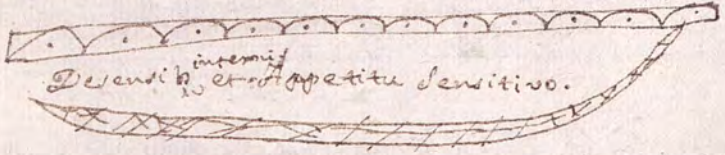 De sensib internis et Appetitu sensitivo.